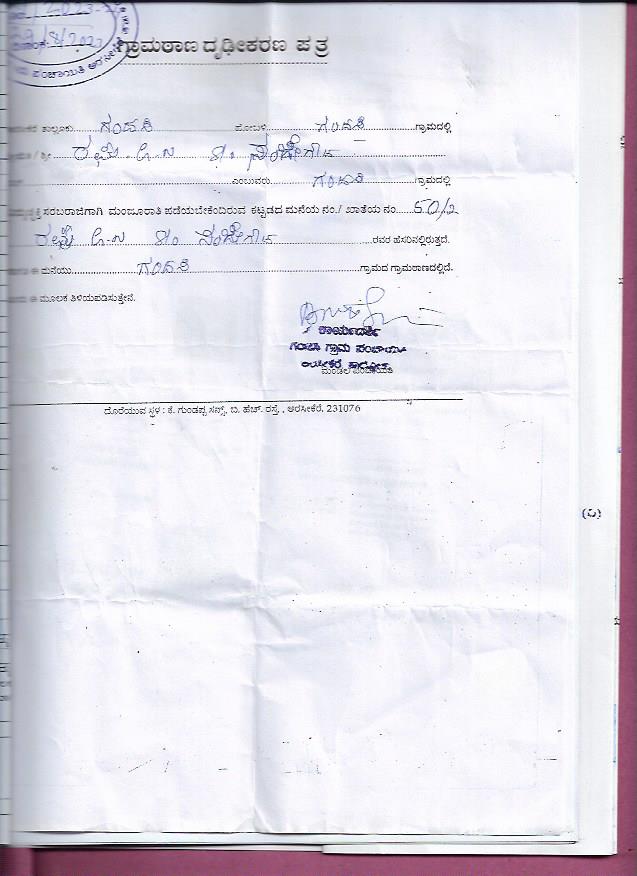 /2023-2
29/8/2023
ಗ್ರಾಮಠಾಣ ದೃಢೀಕರಣ ಪತ್ರ
ತಾಲ್ಲೂಕು ಗಂಡಸಿ ಹೋಬಳಿ ಗಂಡಸಿ ಗ್ರಾಮದಲ್ಲಿ
/ ಶ್ರೀ
ಎಂಬುವರು ಗಂಡಸಿ ಗ್ರಾಮದಲ್ಲಿ
ಸರಬರಾಜಿಗಾಗಿ ಮಂಜೂರಾತಿ ಪಡೆಯಬೇಕೆಂದಿರುವ ಕಟ್ಟಡದ ಮನೆಯ ನಂ./ ಖಾತೆಯ ನಂ. 50/2
ರವರ ಹೆಸರಿನಲ್ಲಿರುತ್ತದೆ.
ಈ ಮನೆಯು ಗಂಡಸಿ ಗ್ರಾಮದ ಗ್ರಾಮಠಾಣದಲ್ಲಿದೆ.
ಈ ಮೂಲಕ ತಿಳಿಯಪಡಿಸುತ್ತೇನೆ.
ಕಾರ್ಯದರ್ಶಿ
ಗಂಡಸಿ ಗ್ರಾಮ ಪಂಚಾಯತಿ
ಅರಸೀಕೆರೆ ತಾಲ್ಲೂಕು
ಮಂಡಲ ಪಂಚಾಯಿತಿ
ದೊರೆಯುವ ಸ್ಥಳ : ಕೆ. ಗುಂಡಪ್ಪ ಸನ್ಸ್, ಬಿ. ಹೆಚ್. ರಸ್ತೆ, ಅರಸೀಕೆರೆ. 231076